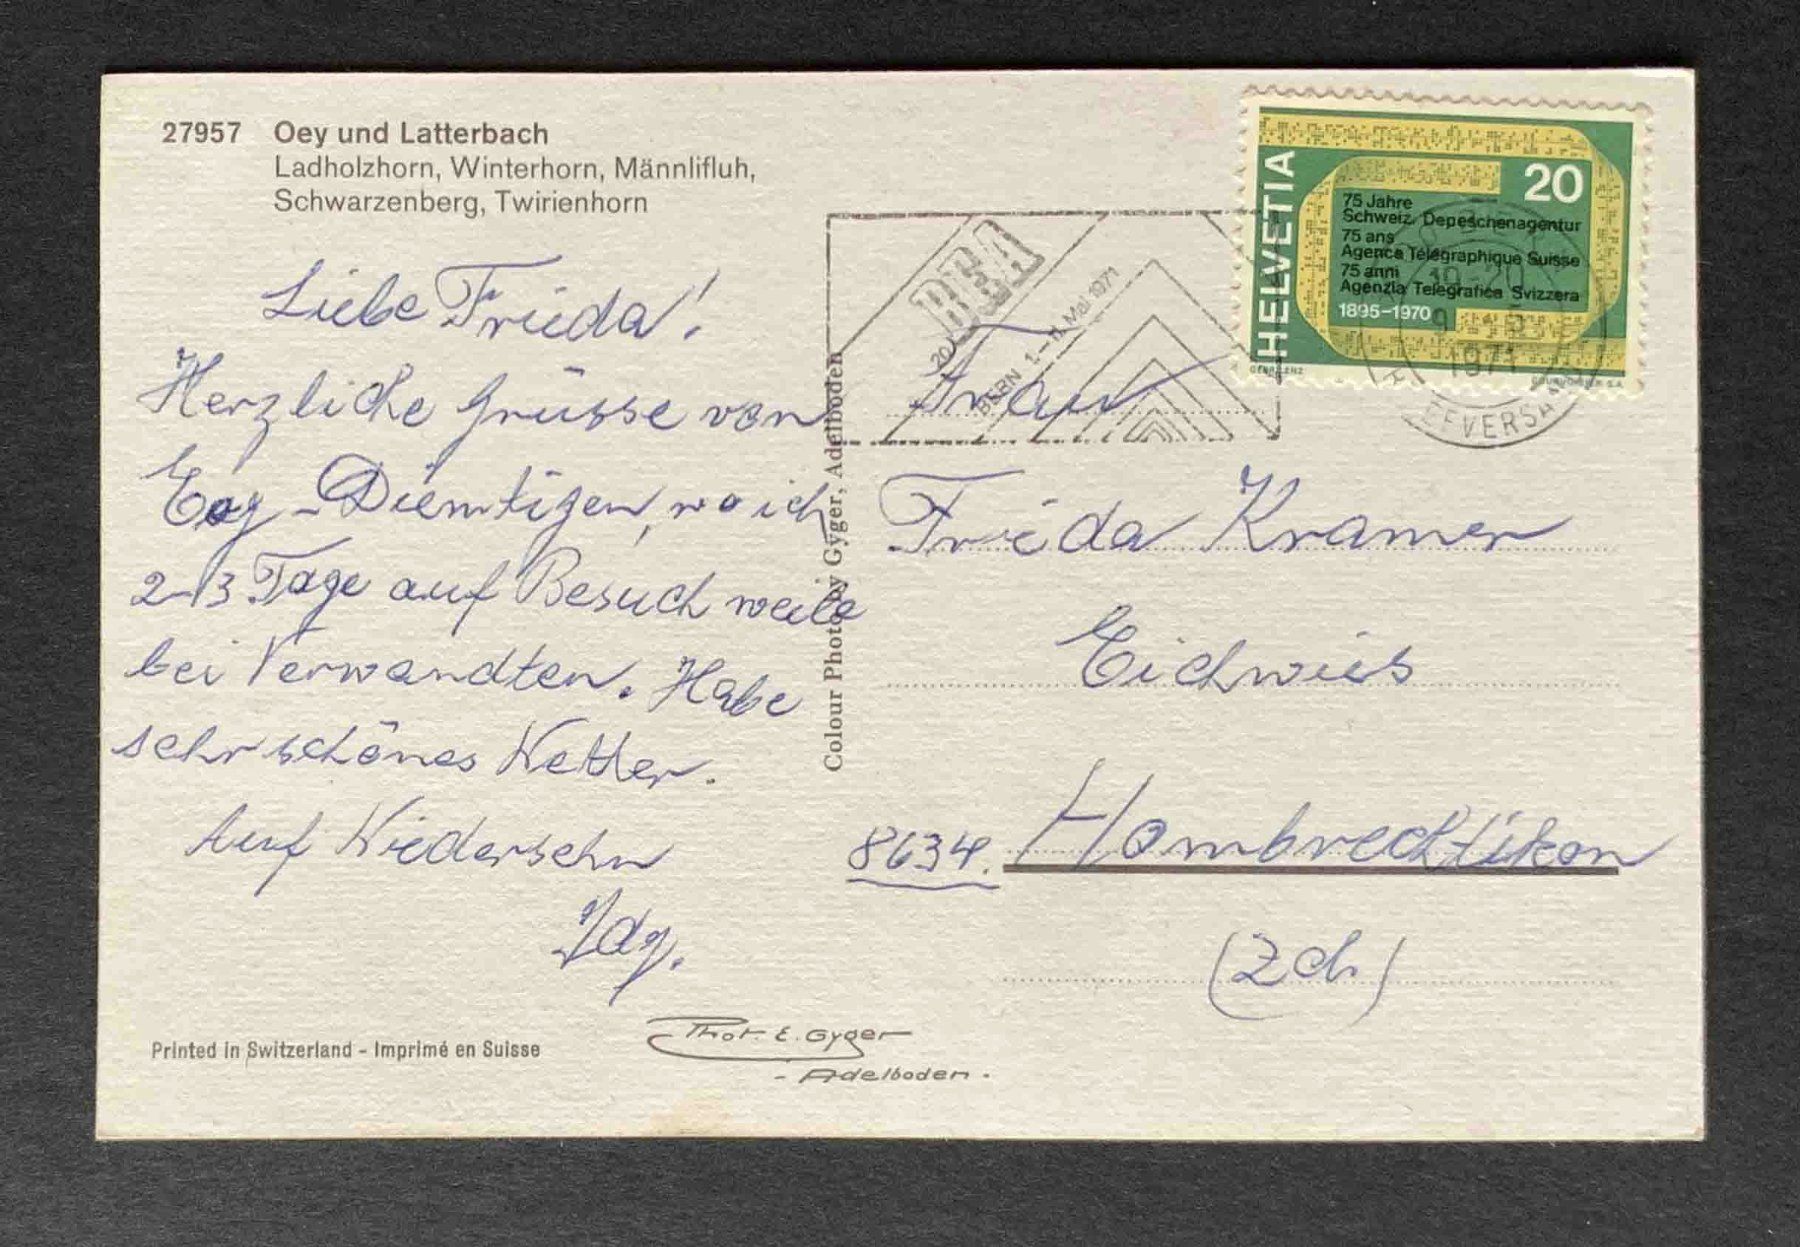 27957 Oey und Latterbach
Ladholzhorn, Winterhorn, Männlifluh,
Schwarzenberg, Twirienhorn
Liebe Frieda!
Herzliche Grüsse von
Oey-Diemtigen, wo ich
2-3 Tage auf Besuch weile
bei Verwandten. Habe
sehr schönes Wetter.
Auf Wiedersehn
Idy.
Printed in Switzerland - Imprimé en Suisse
Phot. E. Gyger
- Adelboden -
Colour Photo by Gyger, Adelboden
BEA
20
BERN 1.-11. Mai 1971
HELVETIA
20
75 Jahre
Schweiz. Depeschenagentur
75 ans
Agence Télégraphique Suisse
75 anni
Agenzia Telegrafica Svizzera
1895-1970
COURVOISIER S.A.
1971
BRIEFVERSAND
Frau
Frieda Kramer
Eichwies
8634. Hombrechtikon
(Zch)